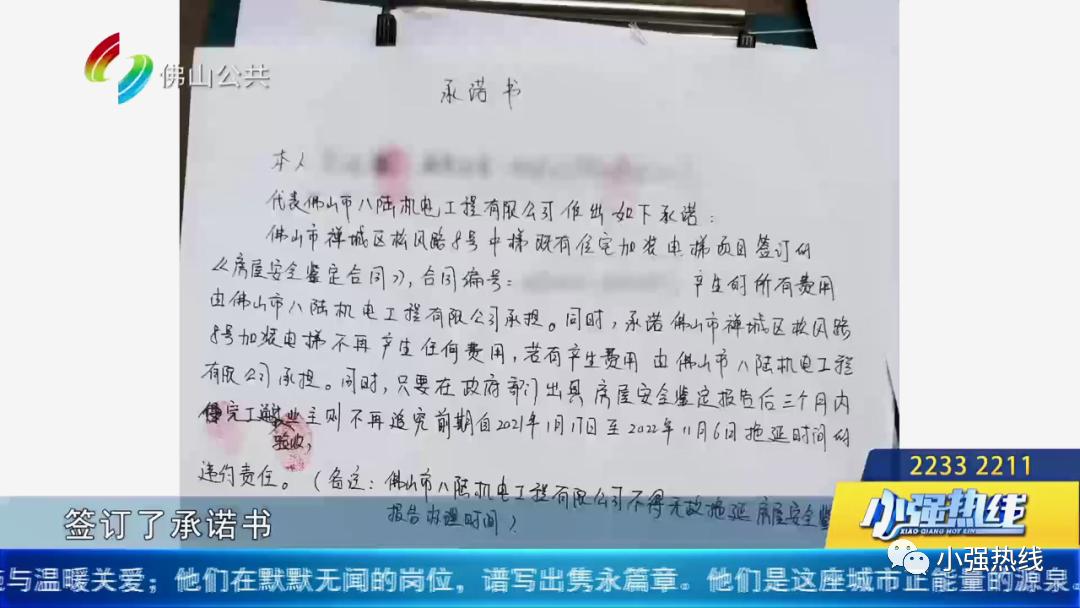 佛山公共
承诺书
本人
代表佛山市八陆机电工程有限公司作出如下承诺：
佛山市禅城区松风路8号中梯既有住宅加装电梯项目签订的
《房屋安全鉴定合同》，合同编号： 产生的所有费用
由佛山市八陆机电工程有限公司承担。同时，承诺佛山市禅城区松风路
8号加装电梯不再产生任何费用，若有产生费用由佛山市八陆机电工程
有限公司承担。同时，只要在政府部门出具房屋安全鉴定报告后三个月内
完工 业主则不再追究前期自2021年1月17日至2022年11月6日拖延时间的
验收，
违约责任。（备注：佛山市八陆机电工程有限公司不得无故拖延房屋安全鉴
报告办理时间）
2233 2211
小强热线
XIAO QIANG HOT LINE
签订了承诺书
小强热线
与温暖关爱；他们在默默无闻的岗位，谱写出隽永篇章。他们是这座城市正能量的源泉。